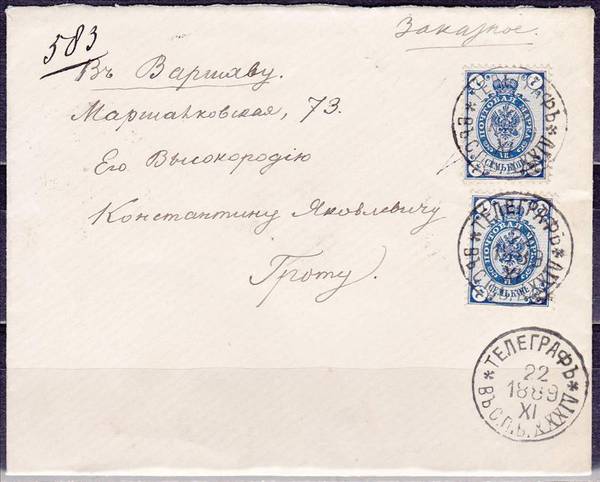 Заказное.
583
Въ Варшаву.
Маршалковская, 73.
Его Высокородію
Константину Яковлевичу
Гроту.
7 7
ПОЧТОВАЯ МАРКА
СЕМЬ КОП.
ТЕЛЕГРАФЪ
XI
ВЪ С.П.Б.
7
ПОЧТОВАЯ МАРКА
СЕМЬ КОП.
ТЕЛЕГРАФЪ
XI
ВЪ С.П.Б.
* ТЕЛЕГРАФЪ *
22
1889
XI
ВЪ С.П.Б. XXXIV